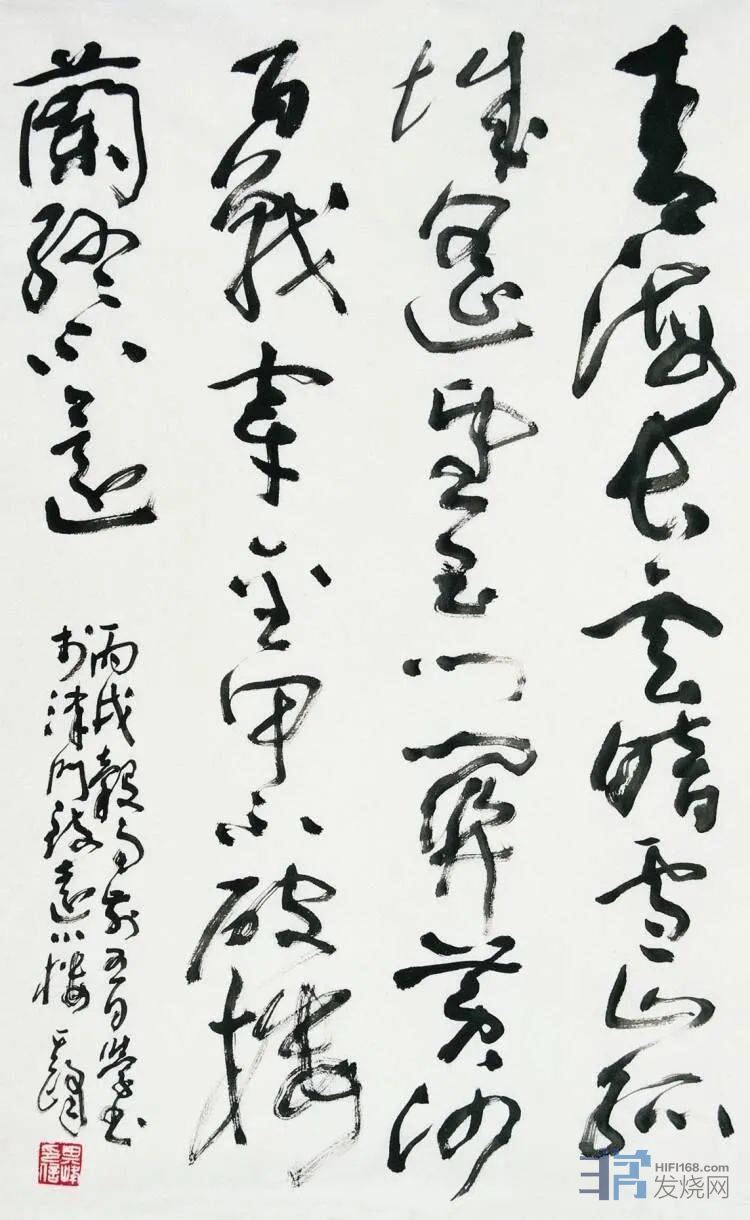 青海長云暗雪山孤
城遙望玉門關黃沙
百戰穿金甲不破樓
蘭終不還
丙戌穀雨前五日書
於津門致遠小樓
HIFI168.com
发烧网